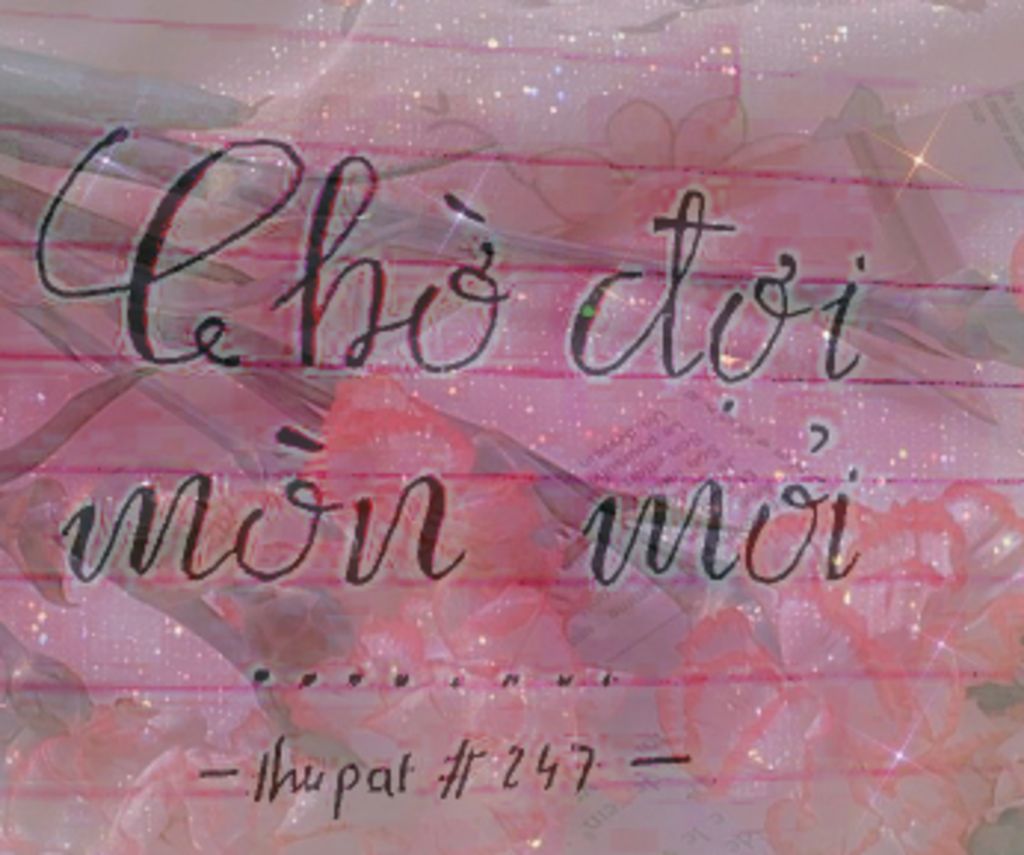 Chờ đợi
mòn mỏi
........
- thupat # 247 -